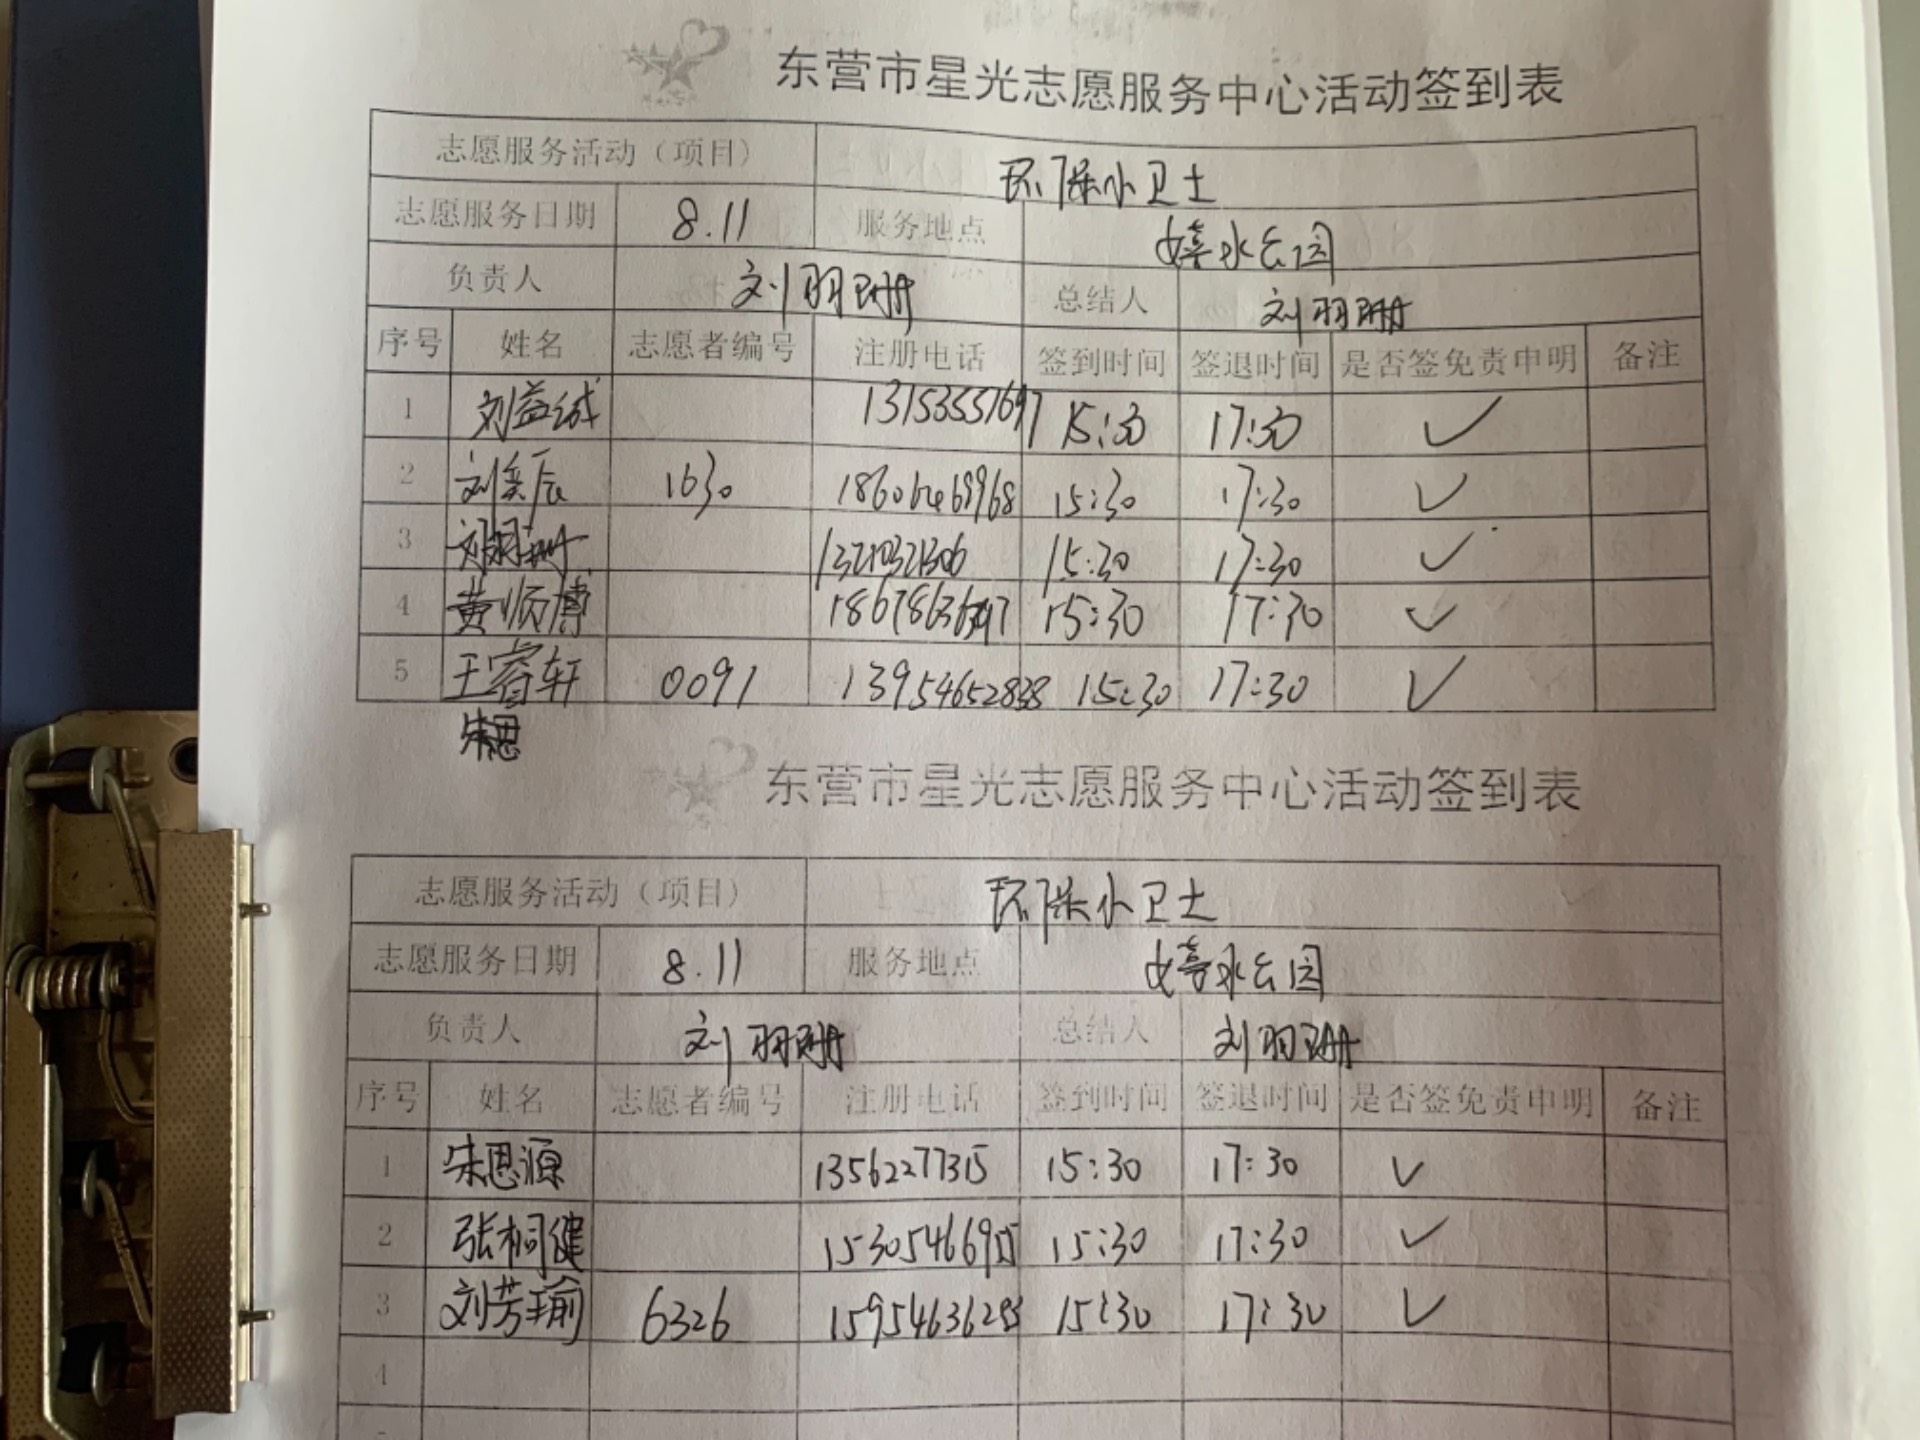 东营市星光志愿服务中心活动签到表
志愿服务活动（项目） 环保小卫士
志愿服务日期 8.11 服务地点 嬉水公园
负责人 刘羽珊 总结人 刘羽珊
序号 姓名 志愿者编号 注册电话 签到时间 签退时间 是否签免责申明 备注
1 刘益诚 15:30 17:30 ✓
2 刘奕辰 1630 18606469968 15:30 17:30 ✓
3 刘羽珊 15:30 17:30 ✓
4 黄顺博 15:30 17:30 ✓
5 王睿轩 0091 13954652838 15:30 17:30 ✓
朱思
东营市星光志愿服务中心活动签到表
志愿服务活动（项目） 环保小卫士
志愿服务日期 8.11 服务地点 嬉水公园
负责人 刘羽珊 总结人 刘羽珊
序号 姓名 志愿者编号 注册电话 签到时间 签退时间 是否签免责申明 备注
1 朱思源 13562277315 15:30 17:30 ✓
2 张桐健 15:30 17:30 ✓
3 刘芳瑜 6326 15:30 17:30 ✓
4